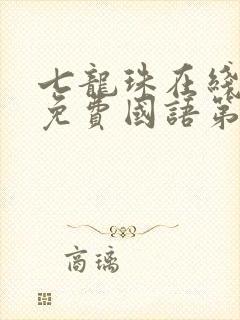 七龍珠在綫
免費國語第
商璃